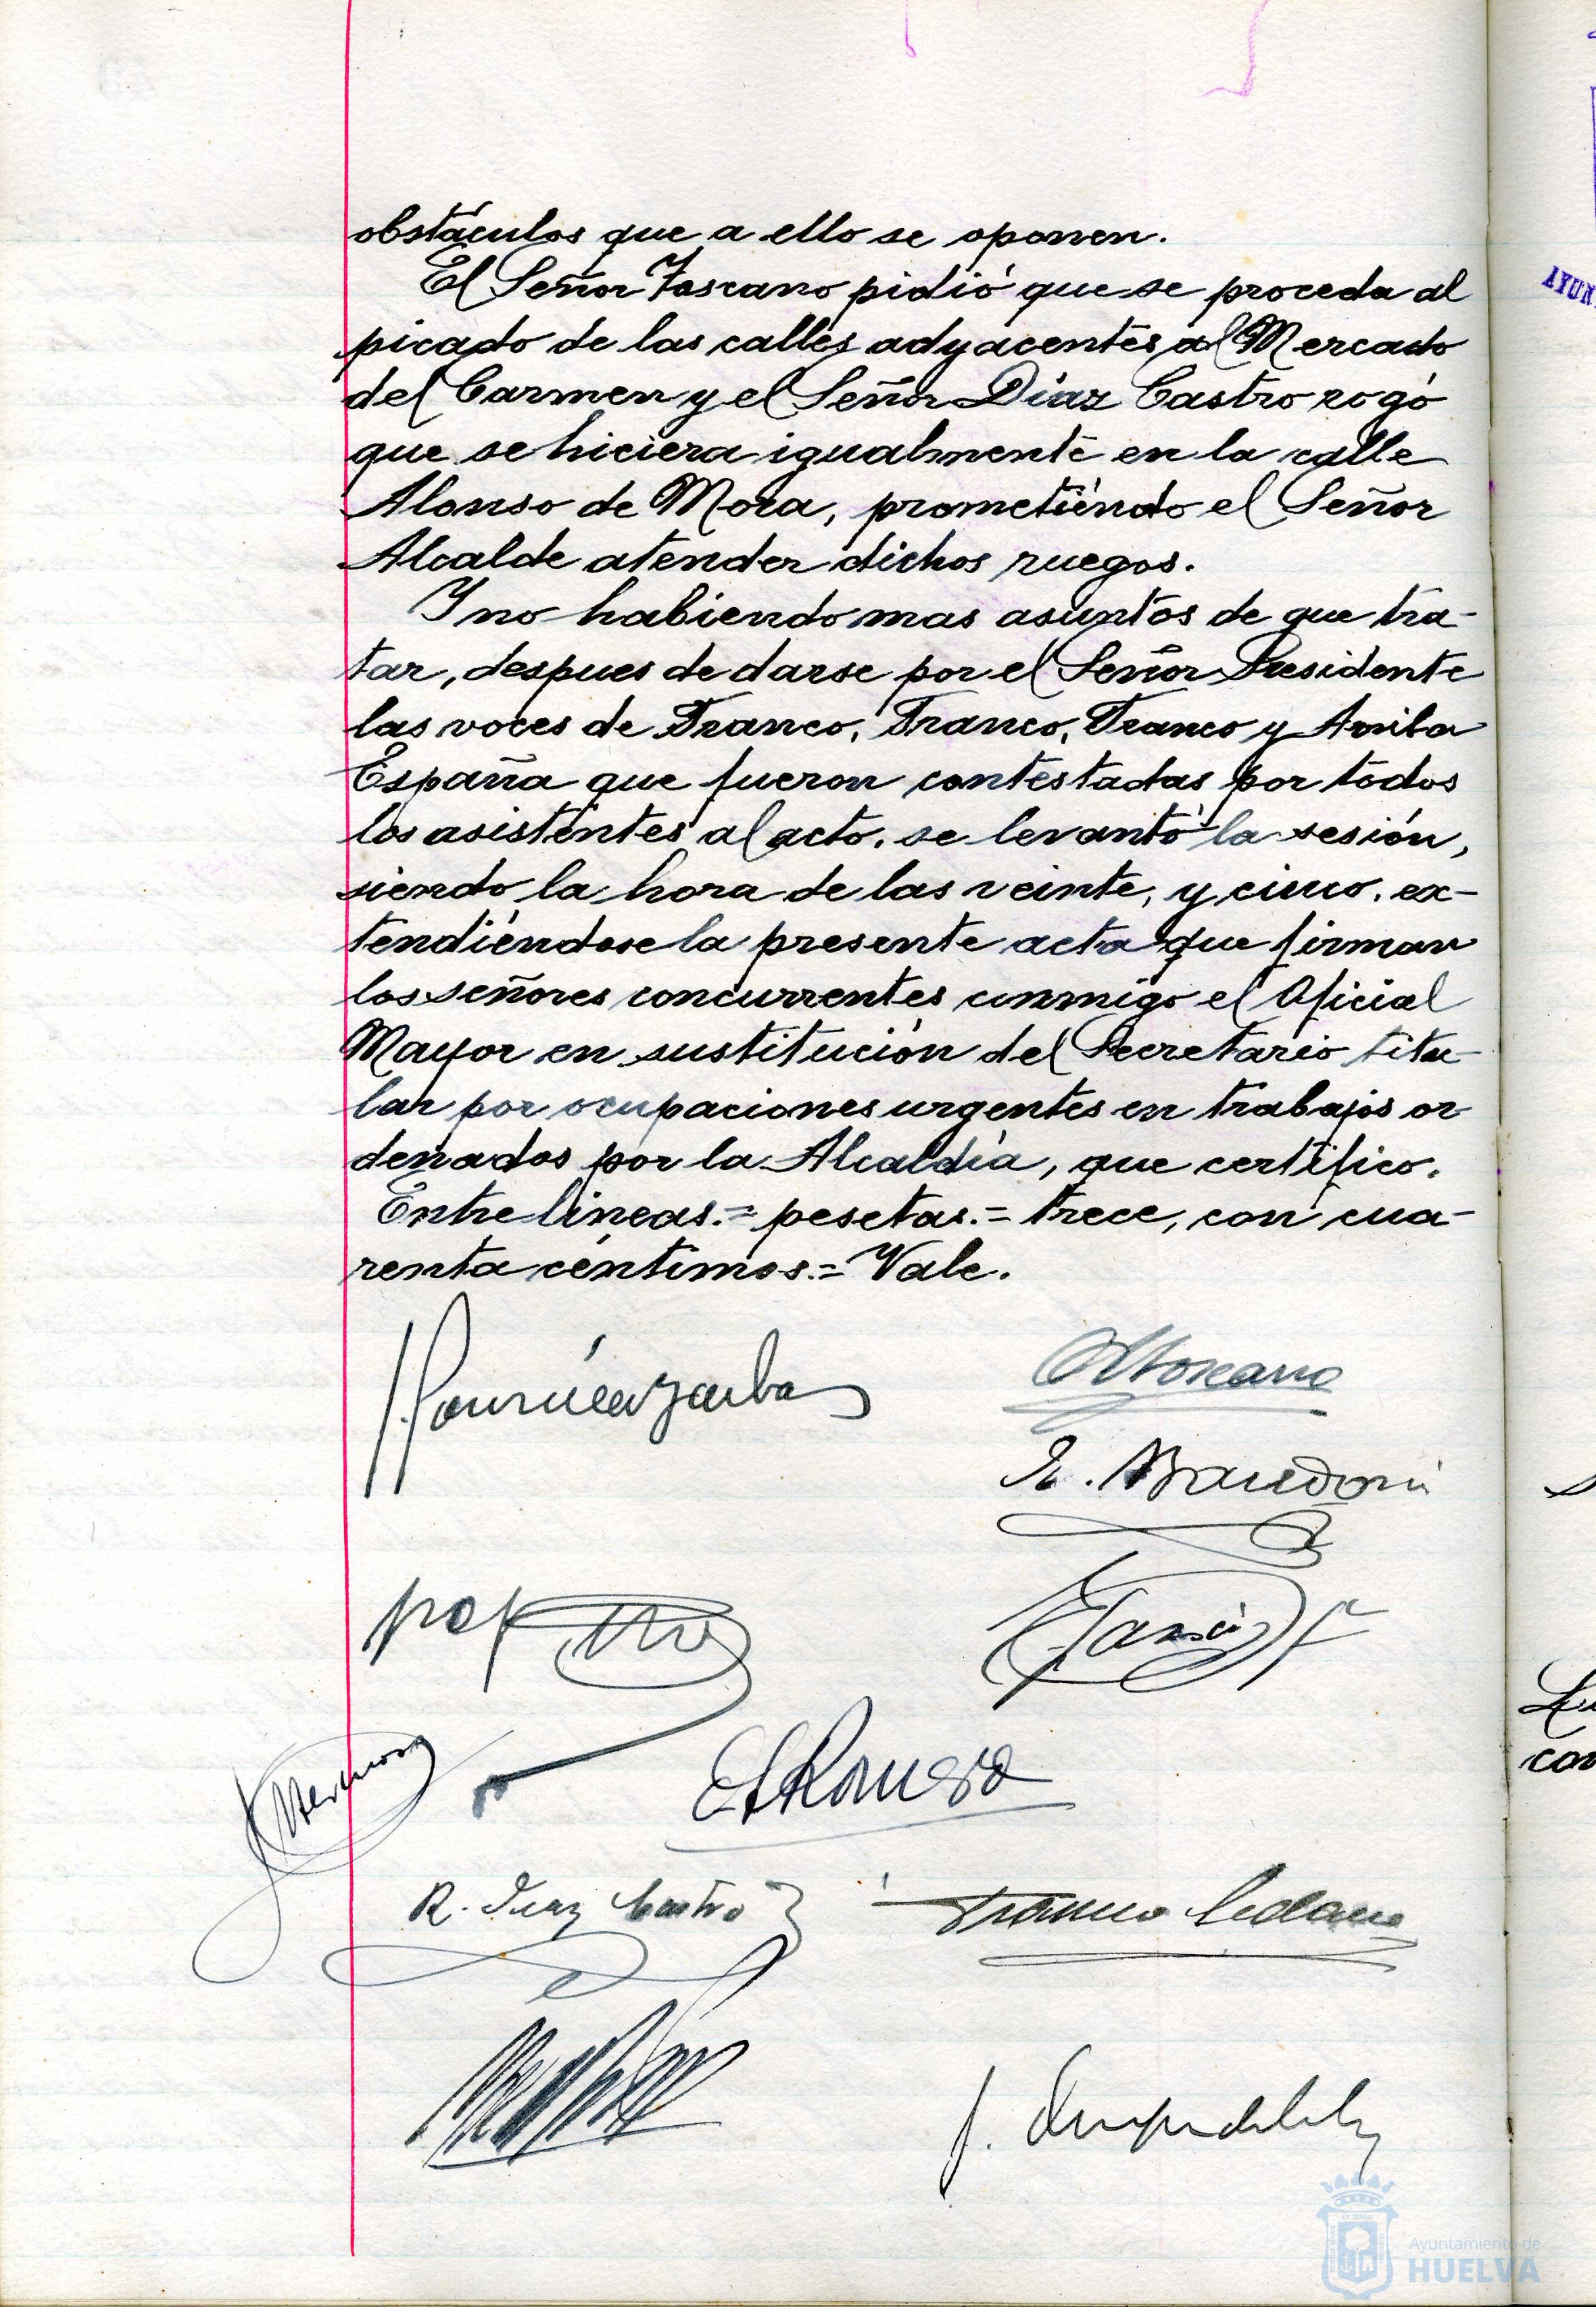 obstáculos que a ello se oponen.
El Señor Toscano pidió que se proceda al
picado de las calles adyacentes al Mercado
del Carmen y el Señor Díaz Castro rogó
que se hiciera igualmente en la calle
Alonso de Mora, prometiéndo el Señor
Alcalde atender dichos ruegos.
Y no habiendo mas asuntos de que tra-
tar, despues de darse por el Señor Presidente
las voces de Franco, Franco, Franco y Arriba
España que fueron contestadas por todos
los asistentes al acto, se levantó la sesión,
siendo la hora de las veinte, y cinco, ex-
tendiéndose la presente acta que firman
los señores concurrentes conmigo el Oficial
Mayor en sustitución del Secretario titu-
lar por ocupaciones urgentes en trabajos or-
denados por la Alcaldía, que certifico.
Entre lineas.= pesetas.= trece, con cua-
renta céntimos.= Vale.
Toscano
R. Diaz Castro
AYUN
con
Ayuntamiento de
HUELVA